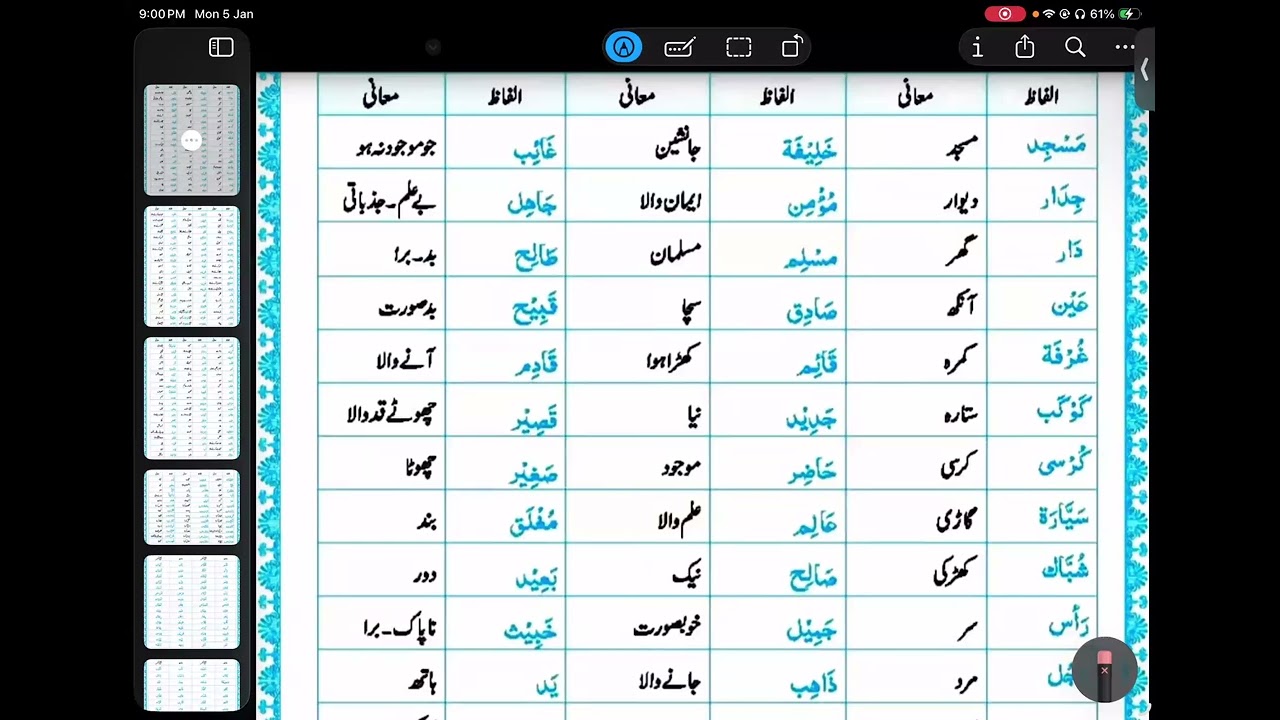 9:00PM Mon 5 Jan 61%
الفاظ معانی الفاظ معانی الفاظ معانی
مَسْجِد مسجد خَلِيْفَة جانشین غَائِب جو موجود نہ ہو
جِدَار دیوار مُؤْمِن ایمان والا جَاهِل بے علم۔جذباتی
دَار گھر مُسْلِم مسلمان طَالِح بد۔برا
عَيْن آنکھ صَادِق سچا قَبِيْح بدصورت
غُرْفَة کمرہ قَائِم کھڑا ہوا قَادِم آنے والا
كَوْكَب ستارہ جَدِيْد نیا قَصِيْر چھوٹے قد والا
كُرْسِی کرسی حَاضِر موجود صَغِيْر چھوٹا
سَيَّارَة گاڑی عَالِم علم والا مُغْلَق بند
شُبَّاك کھڑکی صَالِح نیک بَعِيْد دور
رَأْس سر جَمِيْل خوبصورت خَبِيْث ناپاک۔برا
مرد ذَاهِب جانے والا يَد ہاتھ